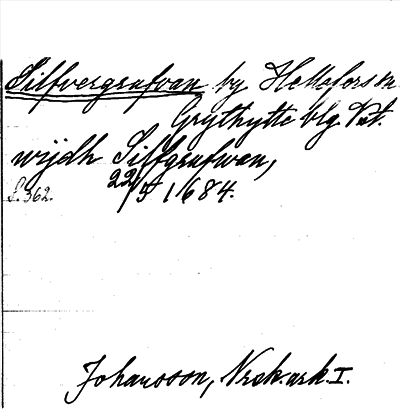 Silfvergrufvan by Hellefors sn
Grythytte blg. Vat.
wijdh Silfgrufwan,
f. 362. 22/5 1684.
Johansson, Nrsk. ark. I.